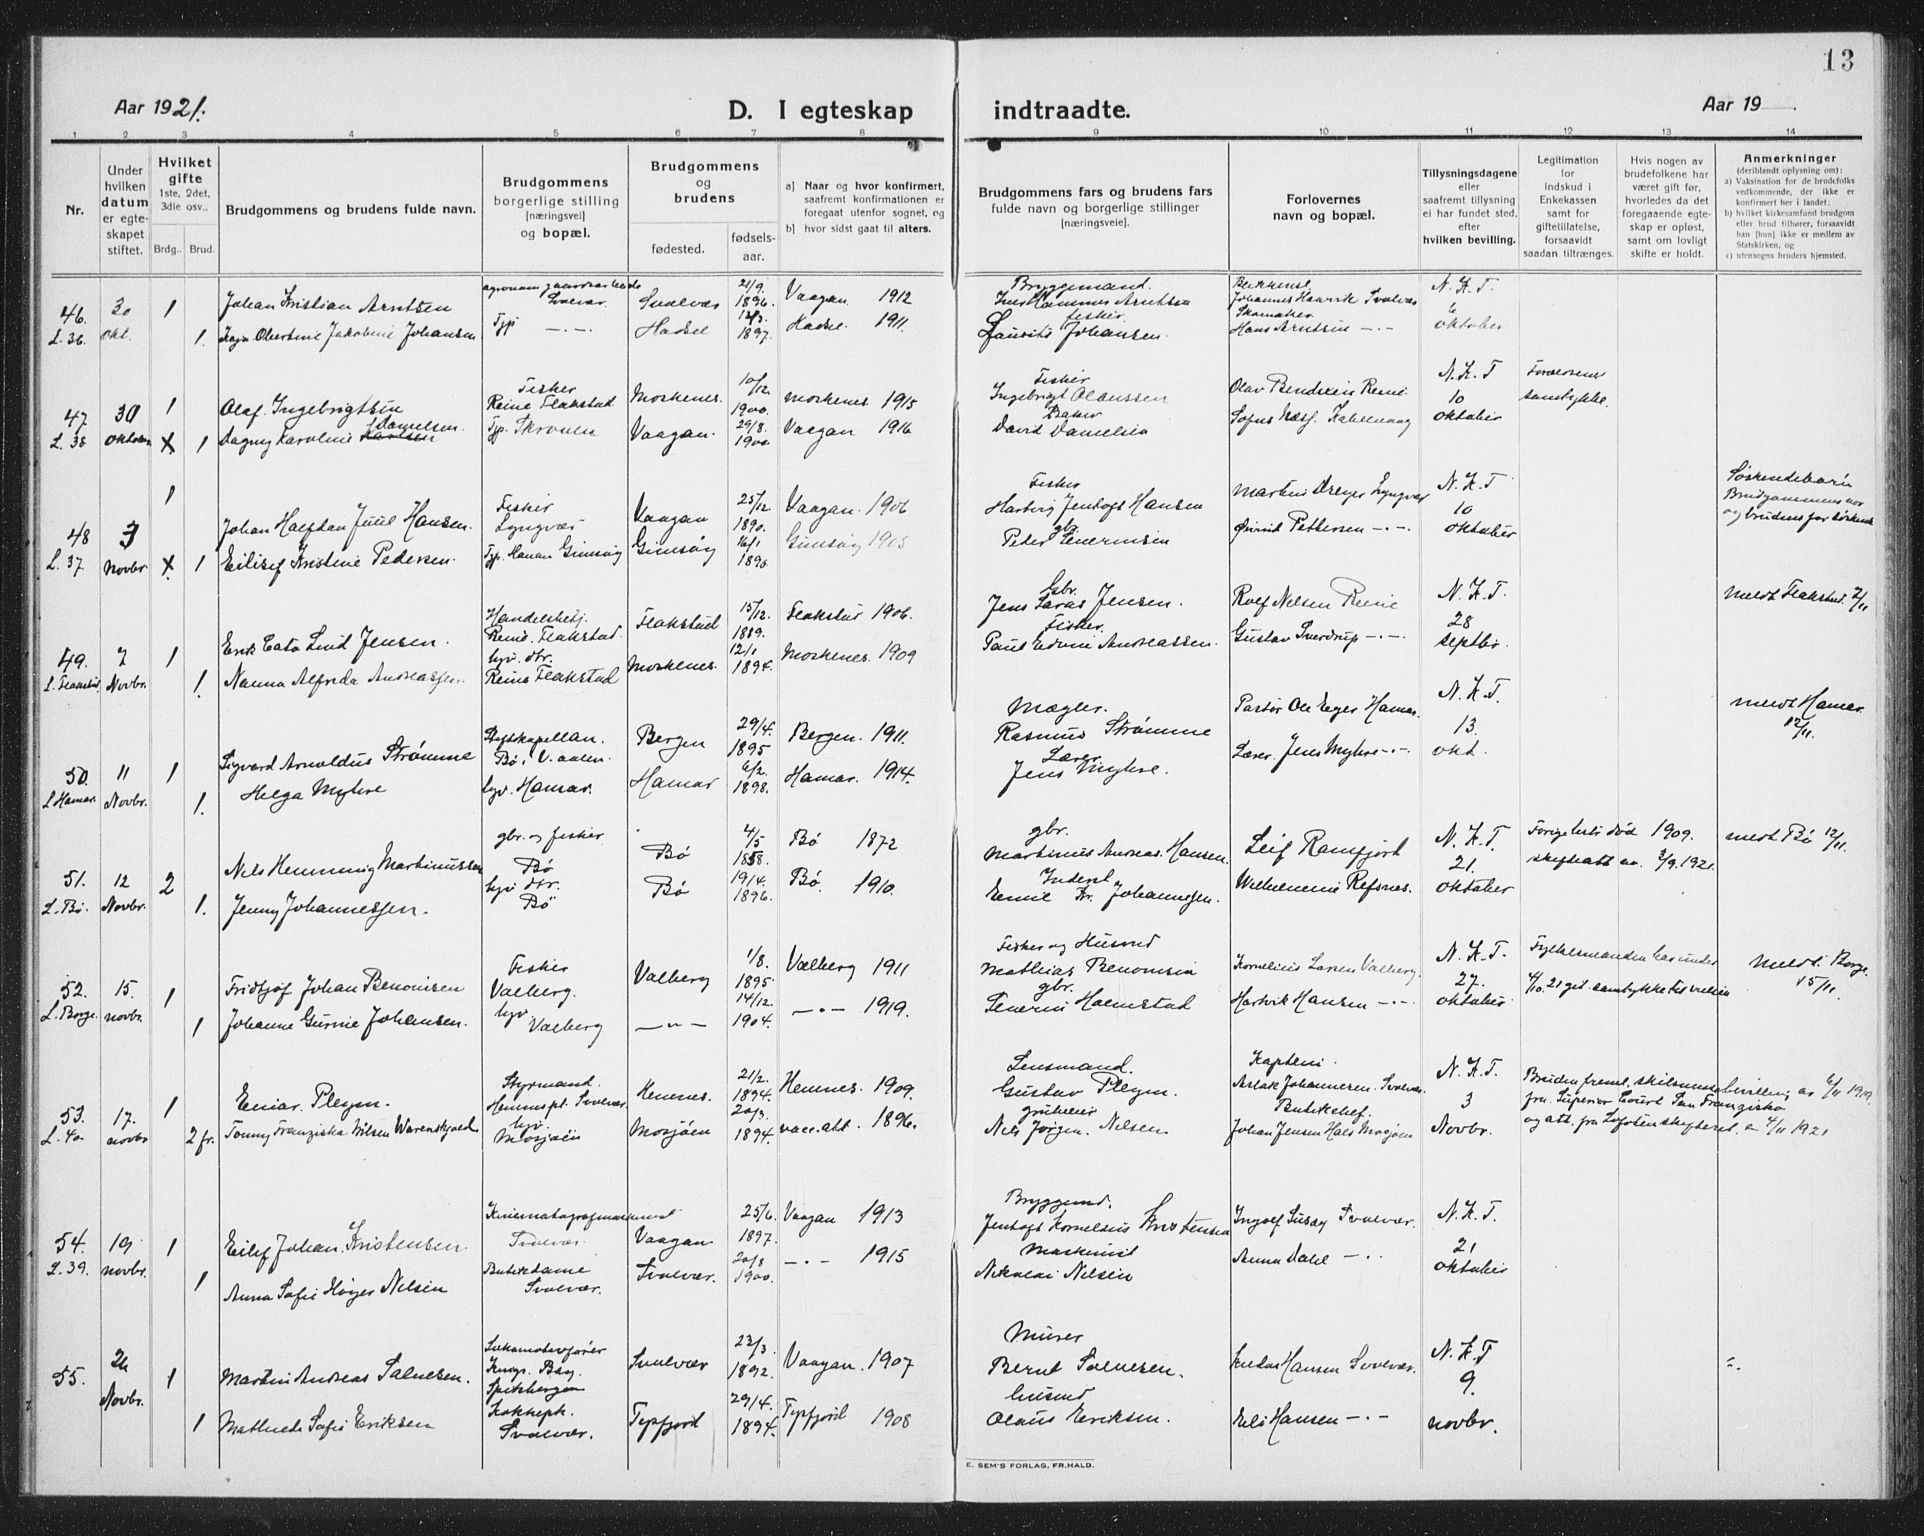 13
Aar 1921.
D. I egteskap indtraadte.
Aar 19
1 2 3 4 5 6 7 8 9 10 11 12 13 14
Nr.
Under hvilken datum er egteskapet stiftet.
Hvilket gifte
1ste, 2det, 3die osv..
Brdg.. Brud.
Brudgommens og brudens fulde navn.
Brudgommens borgerlige stilling
[næringsvei]
og bopæl.
Brudgommens og brudens
fødested. fødsels-aar.
a] Naar og hvor konfirmert, saafremt konfirmationen er foregaat utenfor sognet, og
b] hvor sidst gaat til alters.
Brudgommens fars og brudens fars
fulde navn og borgerlige stillinger
[næringsveie].
Forlovernes
navn og bopæl.
Tillysningsdagene
eller
saafremt tillysning
ei har fundet sted,
efter
hvilken bevilling.
Legitimation
for
indskud i
Enkekassen
samt for
giftetillatelse,
forsaavidt
saadan tiltrænges.
Hvis nogen av
brudefolkene har
været gift før,
hvorledes da det
foregaaende egte-
skap er opløst,
samt om lovligt
skifte er holdt.
Anmerkninger
(deriblandt oplysning om:
a) Vaksination for de brudefolks
vedkommende, der ikke er
konfirmert her i landet;
b) hvilket kirkesamfund brudgom
eller brud tilhører, forsaavidt
han [hun] ikke er medlem av
Statskirken, og
c) utensogns bruders hjemsted.
46. L. 36 30 Okt. 1 1.
Johan Kristian Arntsen
Johansen
Svolvær
Svolvær 21/9. 1896. Vaagan 1912
Tjp. —.—. Hadsel 12/3. 1897. Hadsel. 1911.
Bryggemand.
Jens Hammes Arntsen
fisker
Laurits Johansen.
Johannes Hanrik Svolvær
Skomaker
Hans Arntsen —.—
N. K. T
6
oktober
47 L. 38 30 oktober 1 x 1
Olaf Ingebrigtsen
Danielsen.
Dagny Karoline
Fisker
Reine Flakstad
Tjp. Skroven
Moskenes. 10/12 1900. Moskenes 1915
Vaagan. 29/8. 1900 Vaagan 1916
Fisker
Ingebrigt Olaussen
Baker
David Danielsen
Olav Bendixen Reine
Sofus Næss. Kabelvaag
N. K. T
10
oktober
Forældrenes
samtykke.
48 L. 37 3 Novbr 1 x 1
Johan Halfdan Juul Hansen.
Eilisef Kristine Pedersen.
Fisker
Lyngvær
Tjp. Gimsøy
Vaagan 25/12. 1890. Vaagan. 1906
Gimsøy 16/1 1890 Gimsøy 1905
Fisker
Hartvig Jentoft Hansen
gb.
Peder Severinsen
Martin Dreyer Lyngvær
Øivind Pettersen —.—
N. K. T
10
oktober
Søskendebarn
Brudgommens mor
og brudens far søskende
49. L. Flakstad 7 Novbr. 1 1.
Erik Cato Lind Jensen.
Nanna Alfrida Andreassen.
Handelsbetj.
Reine. Flakstad.
hjv. dtr.
Reine Flakstad
Flakstad 15/12. 1889. Flakstad 1906.
Moskenes. 12/1 1894. Moskenes 1909
Gbr.
Jens Jensen.
Fisker.
Paul Edvin Andreassen.
Rolf Nilsen Reine
Gustav Sverdrup —.—
N. K. T.
28
septbr.
meldt Flakstad 2/11
50 L Hamar. 11 Novbr. 1 1.
Sigvard Arnoldus Strømme
Helga Myhre
Stiftskapellan.
Bø i V.aalen.
hjv. Hamar.
Bergen 29/4. 1895 Bergen. 1911.
Hamar 6/2. 1898. Hamar. 1914.
Mægler.
Rasmus Strømme
Lærer
Jens Myhre.
Pastor Ole Eger Hamar.
Lærer. Jens Myhre —.—
N. K. T.
13.
okt.
meldt Hamar.
12/11.
51. L. Bø. 12 Novbr. 2 1.
Nils Hemming Martinussen
Jenny Johannessen.
gbr. og fisker
Bø
hjv dtr.
Bø
Bø 4/5 1858. Bø 1872
Bø 19/4. 1896. Bø. 1910.
gbr.
Martinus Andreas. Hansen.
Inderst
Emil Kr. Johannessen.
Leif Ramfjort
Wilhelmine Refsnes.
N. K. T.
21.
oktober
Forige hustr. død 1909.
skifteatt av. 3/9. 1921.
meldt Bø 12/11.
52. L. Borge. 15. novbr. 1 1
Fridtjof Johan Benonisen
Johanne Gurine Johansen.
Fisker
Valberg.
hjv
Valberg
Valberg 1/8. 1895 Valberg 1911
—„— 14/12. 1904. —.— 1919.
Fisker og Husmd
Mathias Benonisen
gbr.
Severin Holmstad
Kornelius Larsen Valberg.
Hartvik Hansen —.—
N. K. T.
27.
oktober
Fylkesmanden har under
4/10. 21 git samtykke til vielsen
meldt Borge.
15/11.
53. L. 40 17. novbr 1 2 fr.
Einar. Plegen.
Tonny Franziska Nilsen Warenskjold
Styrmand.
Hemnespl. Svolvær.
hjv.
Mosjøen
Hemnes. 21/2. 1894. Hemnes. 1909.
Mosjøen 20/3. 1894 vacc. att. 1896.
Lensmand.
Gustav Plegen.
Nils Jørgen. Nilsen
Kaptein.
Aslak Johannesen. Svolvær.
Butikchef.
Johan Jensen Hals Mosjøen
N. K. T.
3
Novbr.
Bruden freml. skilsmissebevilling av 6/11 1919.
fra Superior Court San Franzisko
og att. fra Lofoten skifteret. av 4/11 1921
54. L. 39. 19 novbr. 1 1
Eilif Johan. Kristensen
Anna Sofie Høyer Nilsen
Kinematografmaskinist
Svolvær.
Butikdame
Svolvær.
Vaagan 25/6. 1897. Vaagan 1913
Svolvær. 20/8 1900. —.— 1915
Bryggemd.
Jentoft Kornelius Kristensen
Maskinist
Nikolai Nilsen
Ingolf Susag Svolvær.
Anna Dahl —.—
N. K. T.
21
oktober
55. 26 Novbr. 1 1
Martin Andreas Solvesen.
Mathilde Sofie Eriksen
Lokomotivfører
Kings Bay
Spitsbergen
Kokkepk.
Svolvær.
Svolvær 23/3. 1892. Vaagan. 1907
Tyfjord 29/4. 1894. Tyfjord 1908
Murer
Bernt Solvesen.
husmd
Olaus Eriksen.
Hansen Svolvær.
Eils Hansen —.—
N. K. T
9.
novbr.
E. SEM'S FORLAG, FR.HALD.